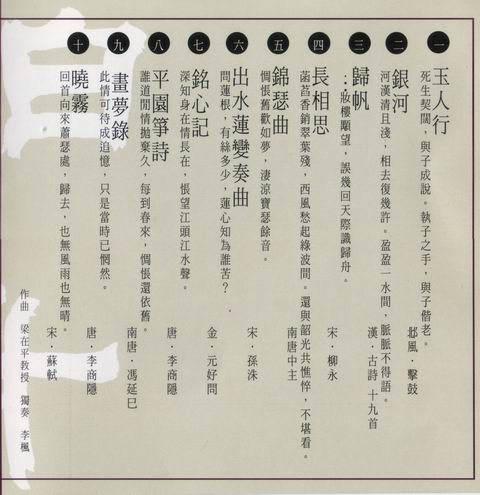 一 玉人行
死生契闊,與子成說。執子之手,與子偕老。
邶風.擊鼓
二 銀河
河漢清且淺,相去復幾許。盈盈一水間,脈脈不得語。
漢.古詩 十九首
三 歸帆
…妝樓顒望,誤幾回天際識歸舟。
宋.柳永
四 長相思
菡萏香銷翠葉殘,西風愁起綠波間。還與韶光共憔悴,不堪看。
南唐中主
五 錦瑟曲
惆悵舊歡如夢,淒涼寶瑟餘音。
宋.孫洙
六 出水蓮變奏曲
問蓮根,有絲多少,蓮心知為誰苦?
金.元好問
七 銘心記
深知身在情長在,悵望江頭江水聲。
唐.李商隱
八 平園箏詩
誰道閒情拋棄久,每到春來,惆悵還依舊。
南唐.馮延巳
九 畫夢錄
此情可待成追憶,只是當時已惘然。
唐.李商隱
十 曉霧
回首向來蕭瑟處,歸去,也無風雨也無晴。
宋.蘇軾
作曲 梁在平教授 獨奏 李楓